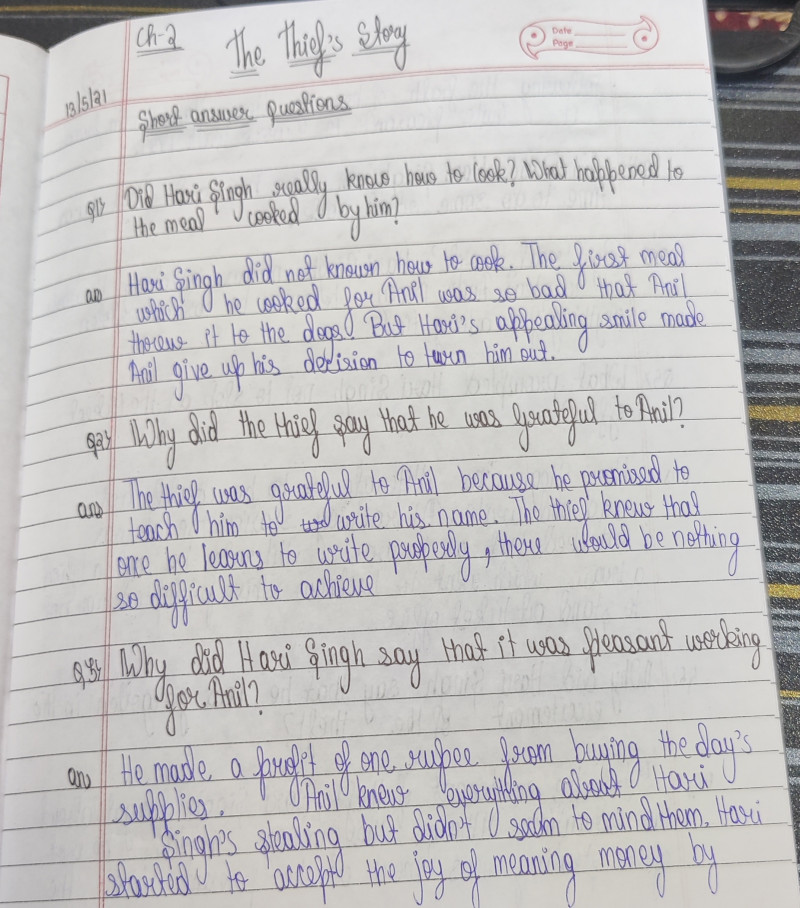 Ch-2
The Thief's Story
Date
Page
13/5/21
Short answer questions
Q1) Did Hari Singh really know how to cook? What happened to
the meal cooked by him?
ans Hari Singh did not known how to cook. The first meal
which he cooked for Anil was so bad that Anil
threw it to the dogs. But Hari's appealing smile made
Anil give up his decision to turn him out.
Q2) Why did the thief say that he was grateful to Anil?
ans The thief was grateful to Anil because he promised to
teach him to write his name. The thief knew that
once he learns to write properly, there would be nothing
so difficult to achieve
Q3) Why did Hari Singh say that it was pleasant working
for Anil?
ans He made a profit of one rupee from buying the day's
supplies. Anil knew everything about Hari
Singh's stealing but didn't seem to mind them. Hari
started to accept the joy of meaning money by